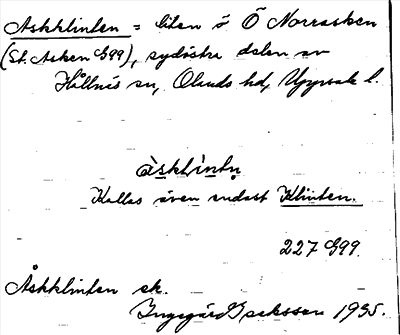 Askklinten = liten ö Ö Norrasken
(St. Asken G99), sydöstra delen av
Hållnäs sn, Olands hd, Uppsala l.
àsklìntn̥
Kallas även endast Klinten.
227 G99.
Åskklinten sk.
Ingegärd Isaksson 1935.